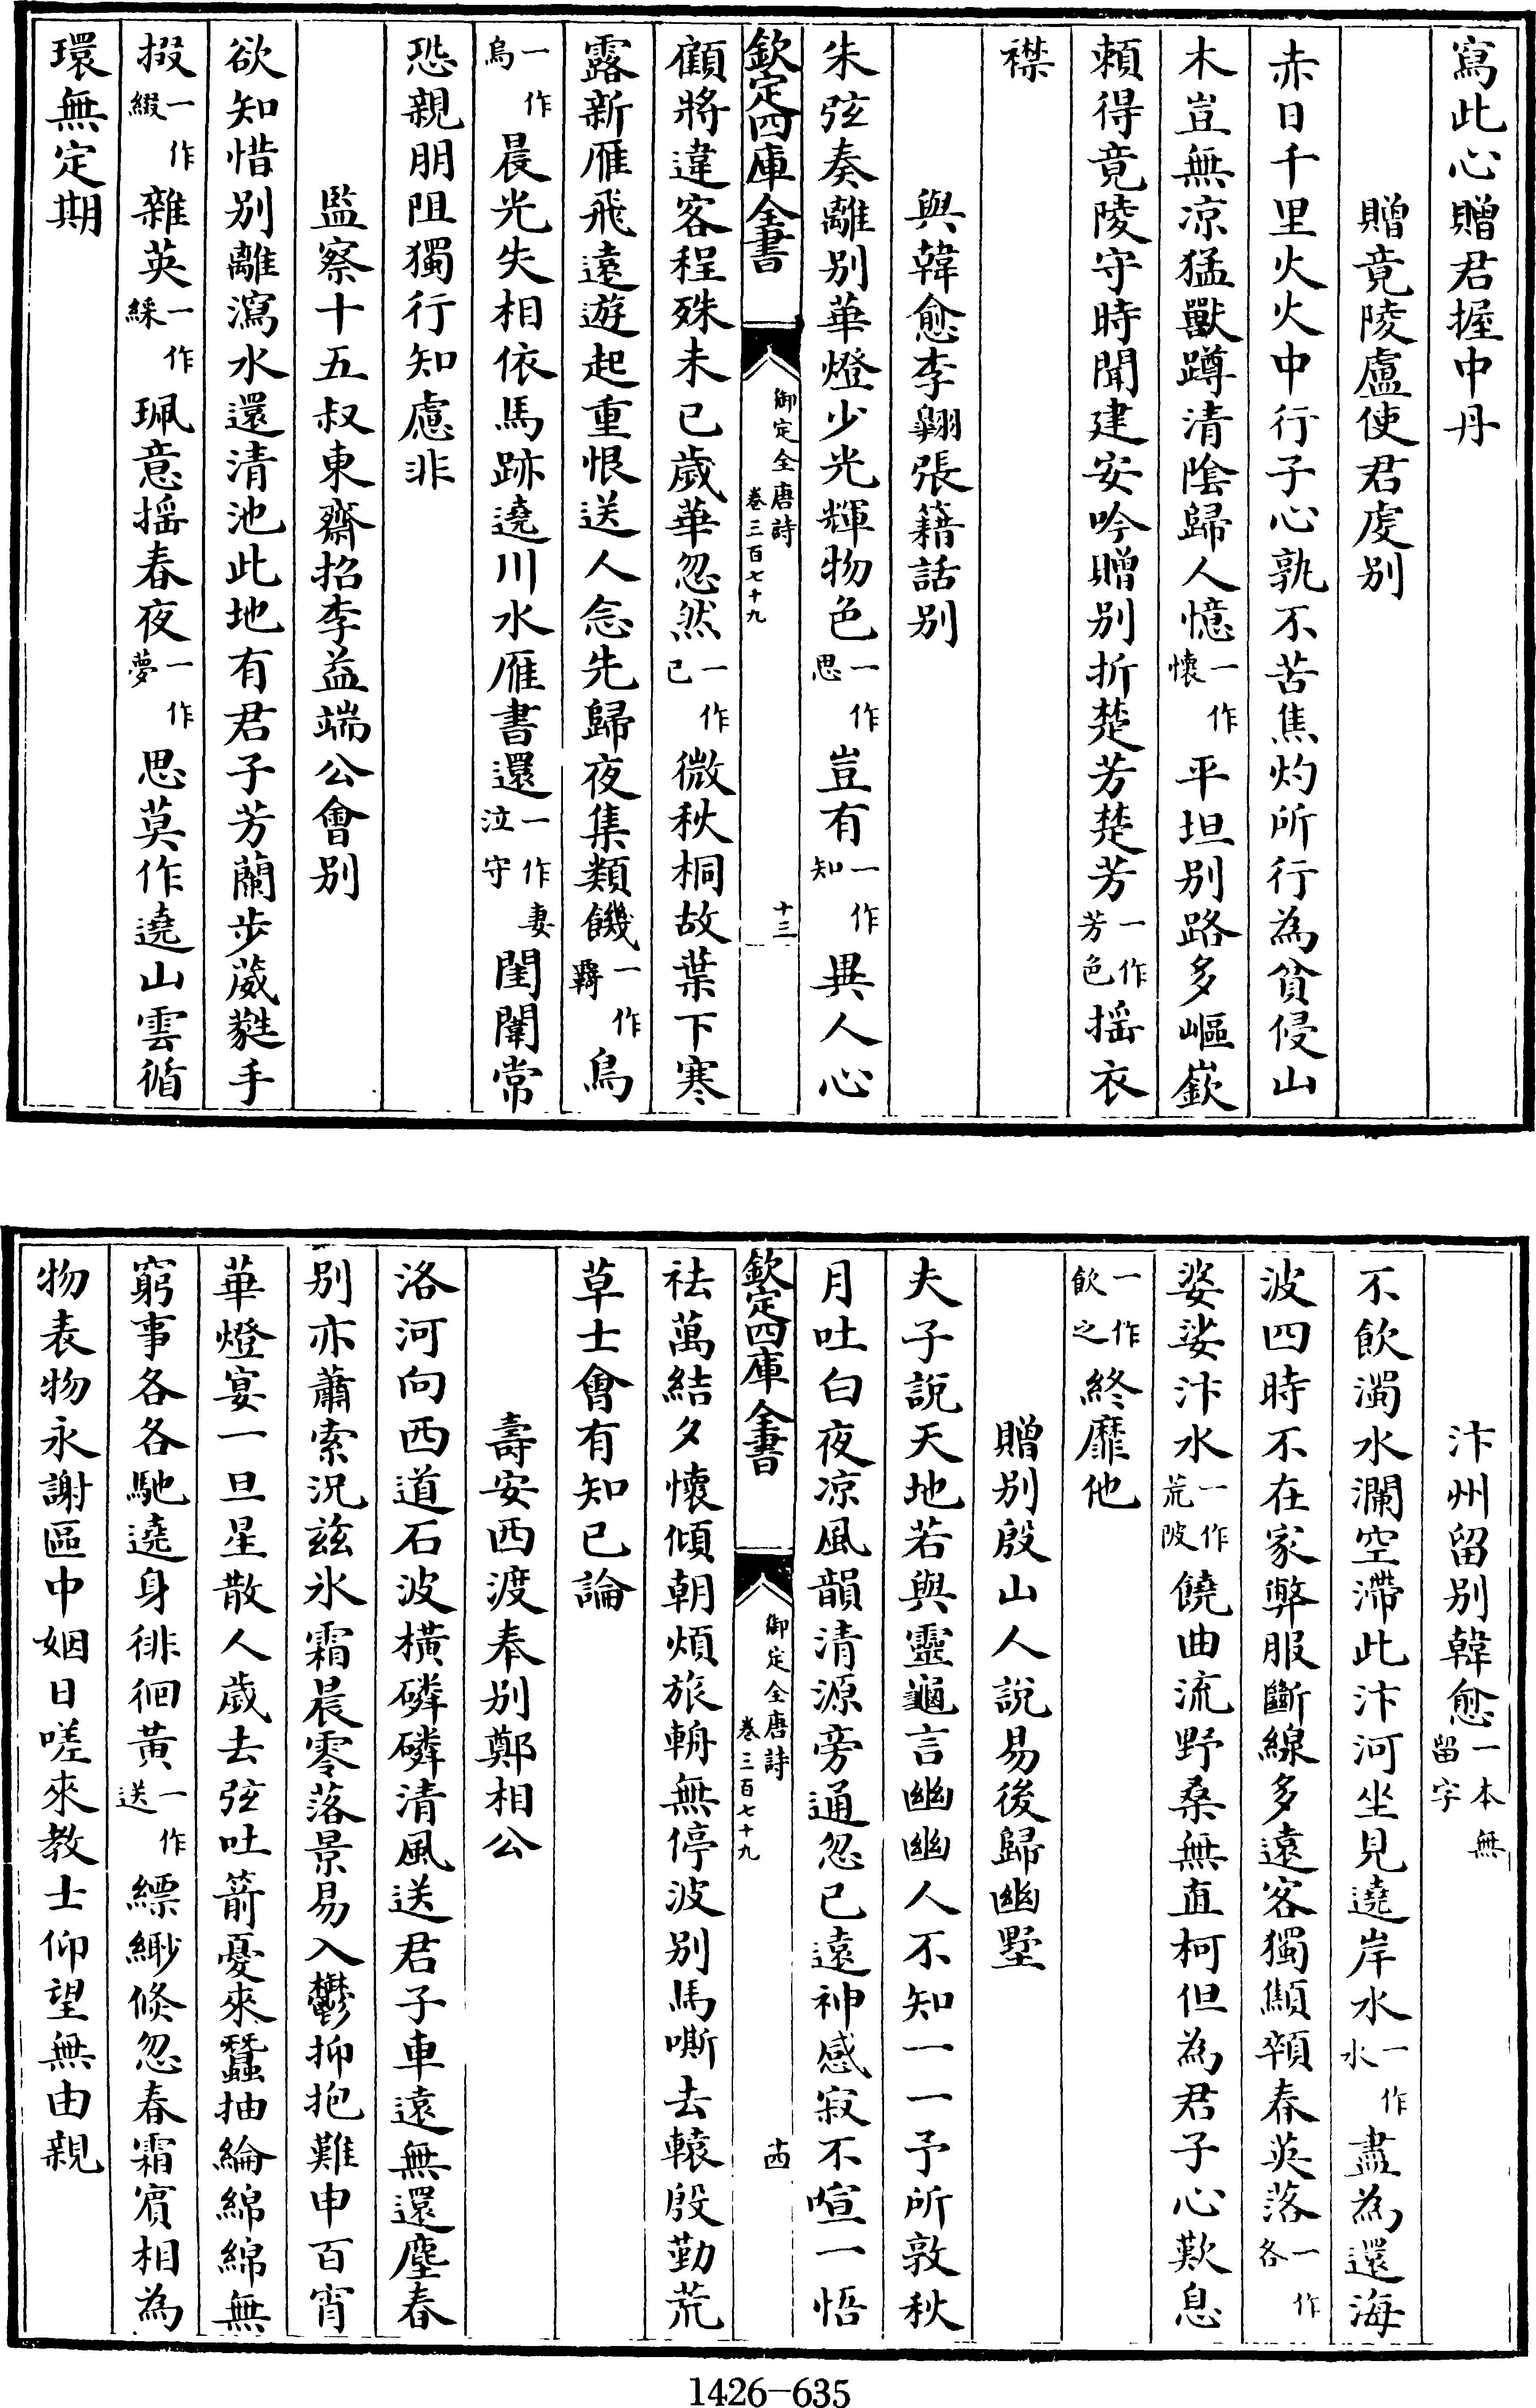 寫此心贈君握中丹
贈竟陵盧使君虔别
赤日千里火火中行子心孰不苦焦灼所行為貧侵山
木豈無凉猛獸蹲清陰歸人憶一作懷平坦别路多嶇嶔
賴得竟陵守時聞建安吟贈别折楚芳楚芳一作芳色揺衣
襟
與韓愈李翺張籍話别
朱弦奏離别華燈少光輝物色一作思豈有一作知異人心
欽定四庫全書 御定全唐詩卷三百七十九 十三
顧將違客程殊未已歲華忽然一作已微秋桐故葉下寒
露新雁飛遠遊起重恨送人念先歸夜集類饑一作羇鳥
一作烏晨光失相依馬跡遶川水雁書還一作妻泣守閨闈常
恐親朋阻獨行知慮非
監察十五叔東齋招李益端公會别
欲知惜别離瀉水還清池此地有君子芳蘭步葳蕤手
掇一作綴雜英一作綵珮意揺春夜一作夢思莫作遶山雲循
環無定期
汴州留别韓愈一本無留字
不飲濁水瀾空滯此汴河坐見遶岸水一作水盡為還海
波四時不在家弊服斷線多遠客獨顦顇春英落一作各
婆娑汴水一作荒陂饒曲流野桑無直柯但為君子心歎息
一作飲之終靡他
贈别殷山人說易後歸幽墅
夫子說天地若與靈龜言幽幽人不知一一予所敦秋
月吐白夜凉風韻清源旁通忽已遠神感寂不喧一悟
欽定四庫全書 御定全唐詩卷三百七十九 十四
袪萬結夕懷傾朝煩旅輈無停波别馬嘶去轅殷勤荒
草士會有知已論
壽安西渡奉别鄭相公
洛河向西道石波橫磷磷清風送君子車遠無還塵春
别亦蕭索況兹氷霜晨零落景易入鬱抑抱難申百宵
華燈宴一旦星散人歲去弦吐箭憂來蠶抽綸綿綿無
窮事各各馳遶身徘徊黄一作送縹緲倐忽春霜賓相為
物表物永謝區中姻日嗟來教士仰望無由親
1426-635